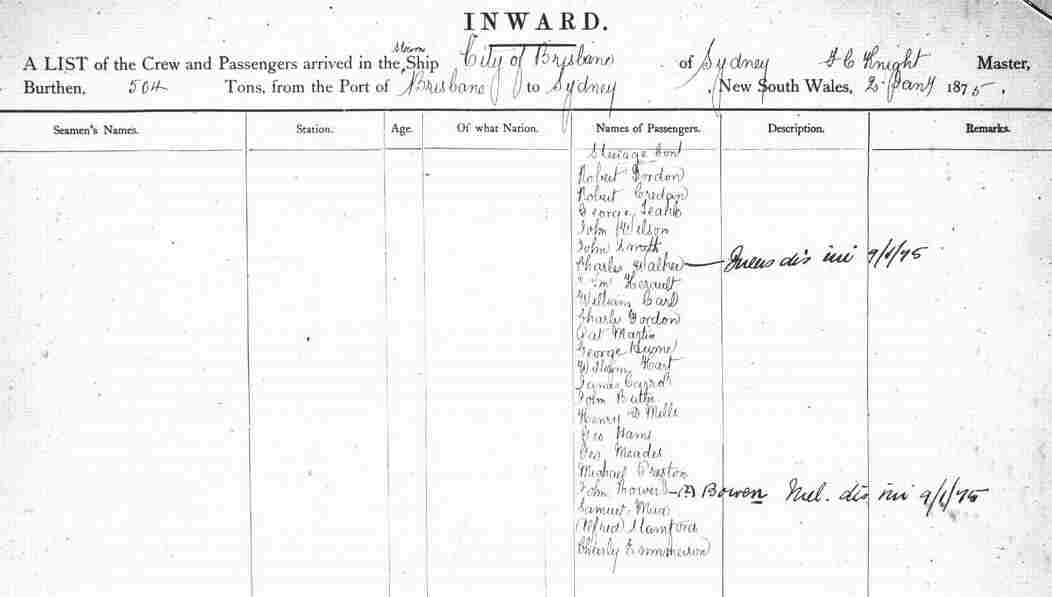 INWARD.
A LIST of the Crew and Passengers arrived in the Steam Ship City of Brisbane of Sydney Knight Master,
Burthen, 504 Tons, from the Port of Brisbane to Sydney, New South Wales, 2 Jany 1875.
Seamen's Names. Station. Age. Of what Nation. Names of Passengers. Description. Remarks.
Steerage Cont
Robert Gordon
Robert
George
John Wilson
John Smith
Charles Walker — dis 9/1/75
William Carl
Charles Gordon
Pat Martin
George Hume
William Hart
James Carroll
John
Henry D Mills
Geo
Meades
Michael
John — (?) Bowen Mel. dis 9/1/75
Samuel
Alfred Stamford
Charly Emmmerson